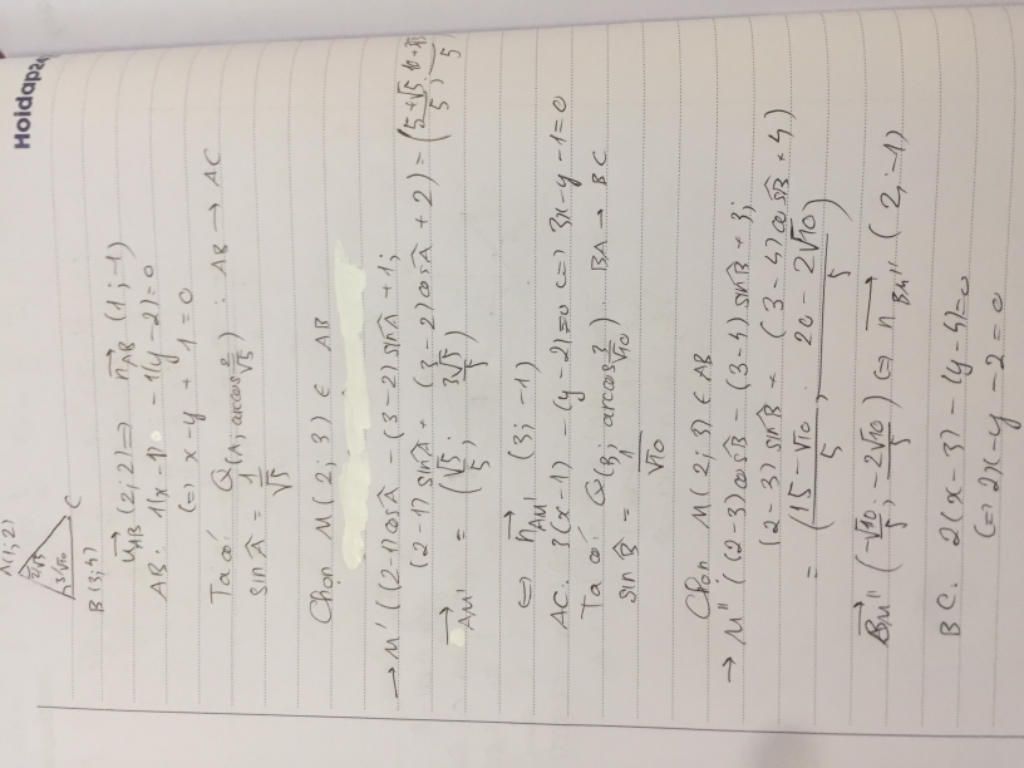 Hoidap
A(1;2)
C
B(3;4)
u_AB (2;2) => n_AB (1;-1)
AB: 1(x-1) - 1(y-2)=0
(=) x - y + 1 = 0
Ta có Q(A; arccos 2/√5) : AB → AC
sin Â = 1/√5
Chọn M(2;3) ∈ AB
→ M'((2-1)cosÂ - (3-2)sinÂ + 1;
(2-1) sinÂ + (3-2)cosÂ + 2) = (5+√5/5;
AM' = (√5/5; 3√5/5)
<=> n_AM' (3; -1)
AC: 3(x-1) - (y-2)=0 <=> 3x-y-1=0
Ta có Q(B; arccos 3/√10) BA → BC
sin B̂ = 1/√10
Chọn M(2;3) ∈ AB
→ M''((2-3)cosB̂ - (3-4)sinB̂ + 3;
(2-3)sinB̂ + (3-4)cosB̂ + 4)
= (15-√10/5; 20-2√10/5)
BM'' (-√10/5; -2√10/5) <=> n_BM'' (2;-1)
BC: 2(x-3) - (y-4)=0
(=) 2x-y-2=0